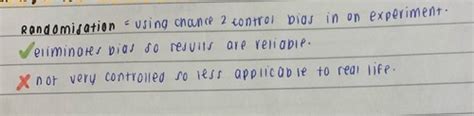 Randomisation = using chance 2 control bias in an experiment.
✓ eliminates bias so results are reliable.
✗ not very controlled so less applicable to real life.